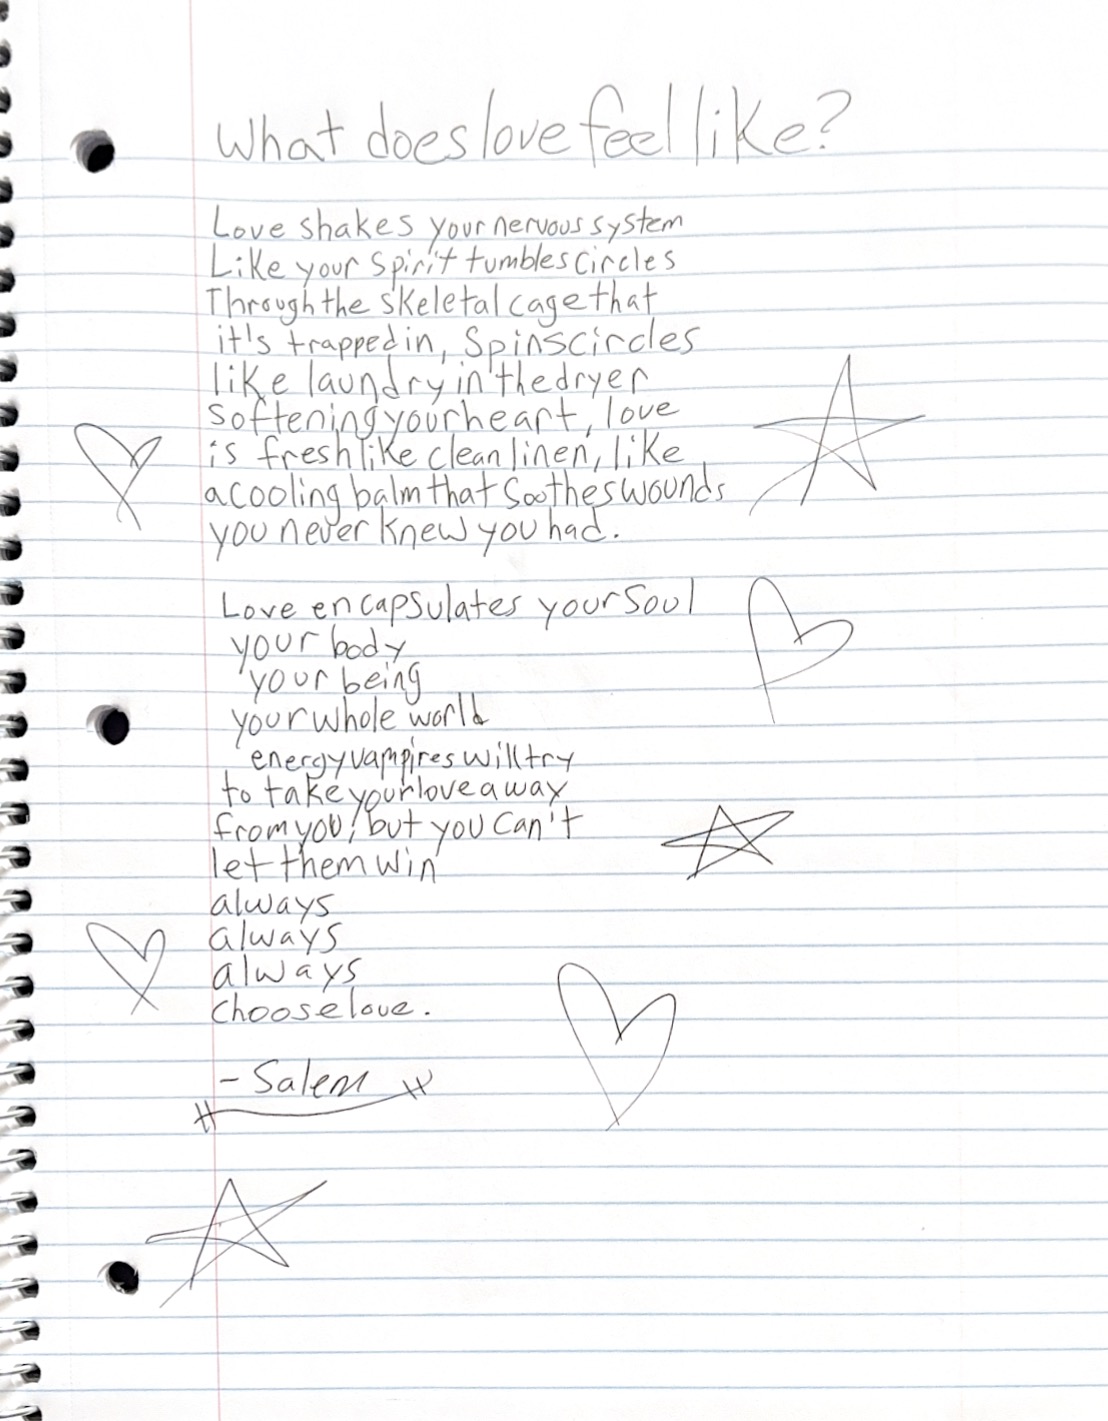 What does love feel like?
Love shakes your nervous system
Like your spirit tumbles circles
Through the skeletal cage that
it's trapped in, Spins circles
like laundry in the dryer
softening your heart, love
is fresh like clean linen, like
a cooling balm that soothes wounds
you never knew you had.
Love encapsulates your soul
your body
your being
your whole world
energy vampires will try
to take your love away
from you, but you can't
let them win
always
always
always
choose love.
- Salem